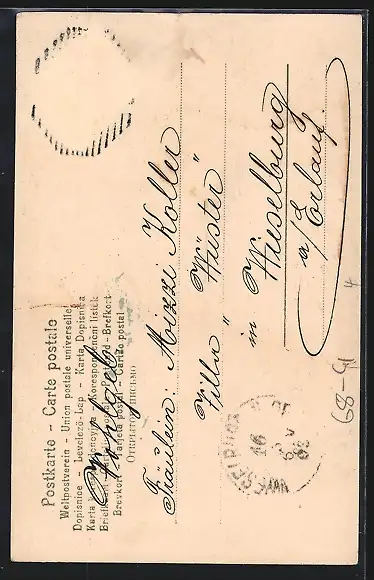 Postkarte - Carte postale
Weltpostverein - Union postale universelle
Dopisnice - Levelező-Lap - Karta Dopisnica
Karta - Korespondenční lístek
Brevkort - Tarjeta postal - Cartão postal
ОТКРЫТОЕ ПИСЬМО
Fräulein Mizzi Koller
Villa "Wüster"
in
Wieselburg
a/ Erlauf
68-91
4